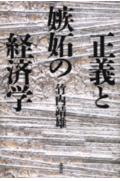 正義と
嫉妬の
経済学
竹内靖雄